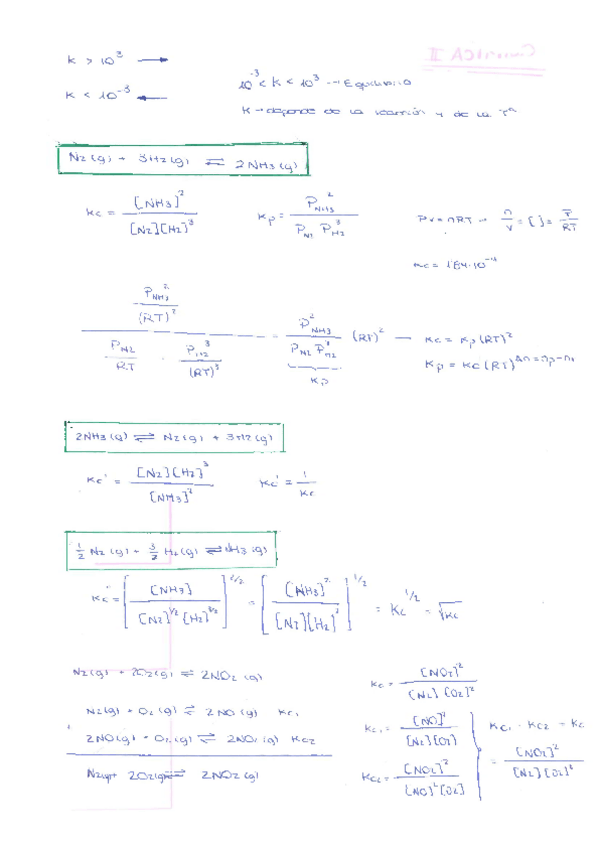 QUIMICA II
K > 10^3 →
K < 10^-3 ←
10^-3 < K < 10^3 → Equilibrio
K → depende de la reacción y de la Tª
N2(g) + 3H2(g) ⇌ 2NH3(g)
Kc = [NH3]^2 / [N2][H2]^3
Kp = P_NH3^2 / P_N2 P_H2^3
PV = nRT → n/V = [ ] = P/RT
(P_NH3^2 / (RT)^2) / (P_N2/RT · P_H2^3/(RT)^3) = P_NH3^2 / P_N2 P_H2^3 (RT)^2 — Kc = Kp(RT)^2
Kp
Kp = Kc(RT)^Δn
2NH3(g) ⇌ N2(g) + 3H2(g)
Kc' = [N2][H2]^3 / [NH3]^2
Kc' = 1/Kc
1/2 N2(g) + 3/2 H2(g) ⇌ NH3(g)
= [ [NH3]^2 / [N2][H2]^3 ]^1/2 = Kc^1/2 = √Kc
N2(g) + 2O2(g) ⇌ 2NO2(g)
Kc = [NO2]^2 / [N2][O2]^2
N2(g) + O2(g) ⇌ 2NO(g) Kc1
Kc1 = [NO]^2 / [N2][O2]
2NO(g) + O2(g) ⇌ 2NO2(g) Kc2
Kc2 = [NO2]^2 / [NO]^2[O2]
Kc1 · Kc2 = Kc
= [NO2]^2 / [N2][O2]^2
N2(g) + 2O2(g) ⇌ 2NO2(g)